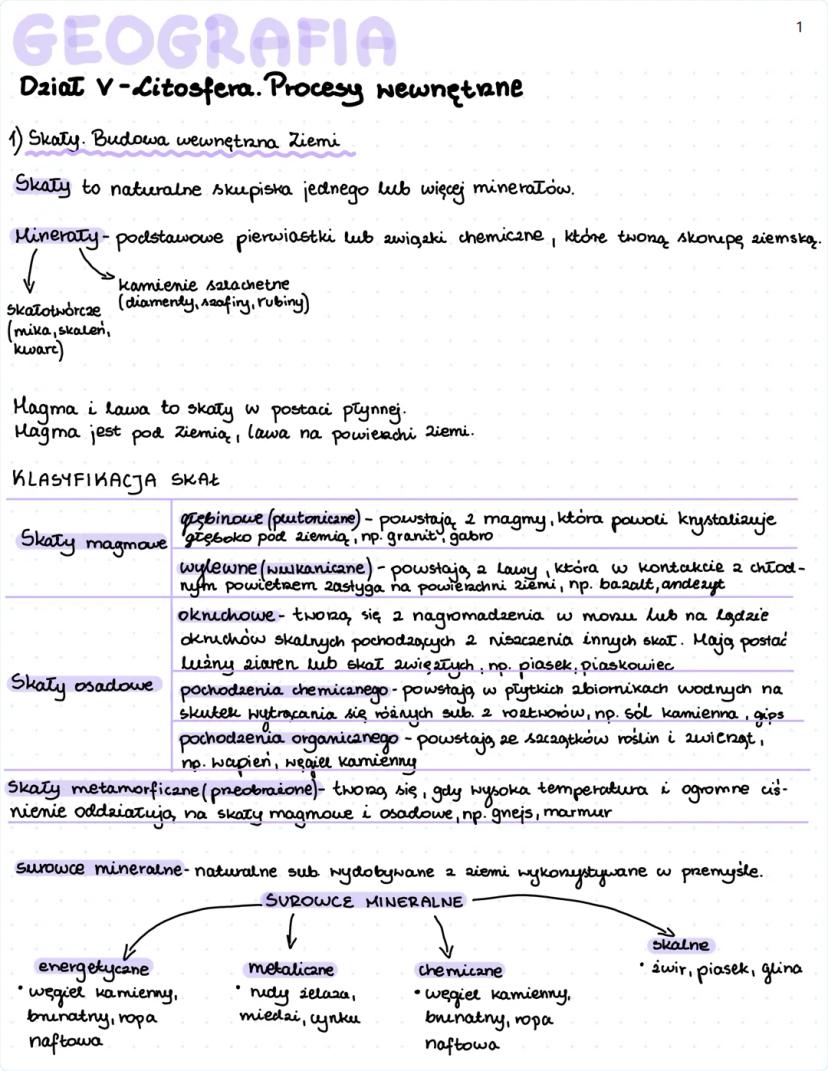 GEOGRAFIA
1
Dział V - Litosfera. Procesy wewnętrzne
1) Skały. Budowa wewnętrzna Ziemi
Skały to naturalne skupiska jednego lub więcej minerałów.
Minerały - podstawowe pierwiastki lub związki chemiczne, które tworzą skorupę ziemską.
kamienie szlachetne
(diamenty, szafiry, rubiny)
skałotwórcze
(mika, skaleń,
kwarc)
Magma i lawa to skały w postaci płynnej.
Magma jest pod Ziemią, lawa na powierzchi ziemi.
KLASYFIKACJA SKAŁ
Skały magmowe
głębinowe (plutoniczne) - powstają z magmy, która powoli krystalizuje
głęboko pod ziemią, np. granit, gabro
wylewne (wulkaniczne) - powstają z lawy, która w kontakcie z chłod-
nym powietrzem zastyga na powierzchni ziemi, np. bazalt, andezyt
Skały osadowe
okruchowe - tworzą się z nagromadzenia w morzu lub na lądzie
okruchów skalnych pochodzących z niszczenia innych skał. Mają postać
luźny ziaren lub skał zwięzłych, np. piasek, piaskowiec
pochodzenia chemicznego - powstają w płytkich zbiornikach wodnych na
skutek wytrącania się różnych sub. z roztworów, np. sól kamienna, gips
pochodzenia organicznego - powstają ze szczątków roślin i zwierząt,
np. wapień, węgiel kamienny
Skały metamorficzne (przeobrażone) - tworzą się, gdy wysoka temperatura i ogromne ciś-
nienie oddziałują na skały magmowe i osadowe, np. gnejs, marmur
surowce mineralne - naturalne sub. wydobywane z ziemi wykorzystywane w przemyśle.
SUROWCE MINERALNE
energetyczne
• węgiel kamienny,
brunatny, ropa
naftowa
metaliczne
• rudy żelaza,
miedzi, cynku
chemiczne
• węgiel kamienny,
brunatny, ropa
naftowa
skalne
• żwir, piasek, glina